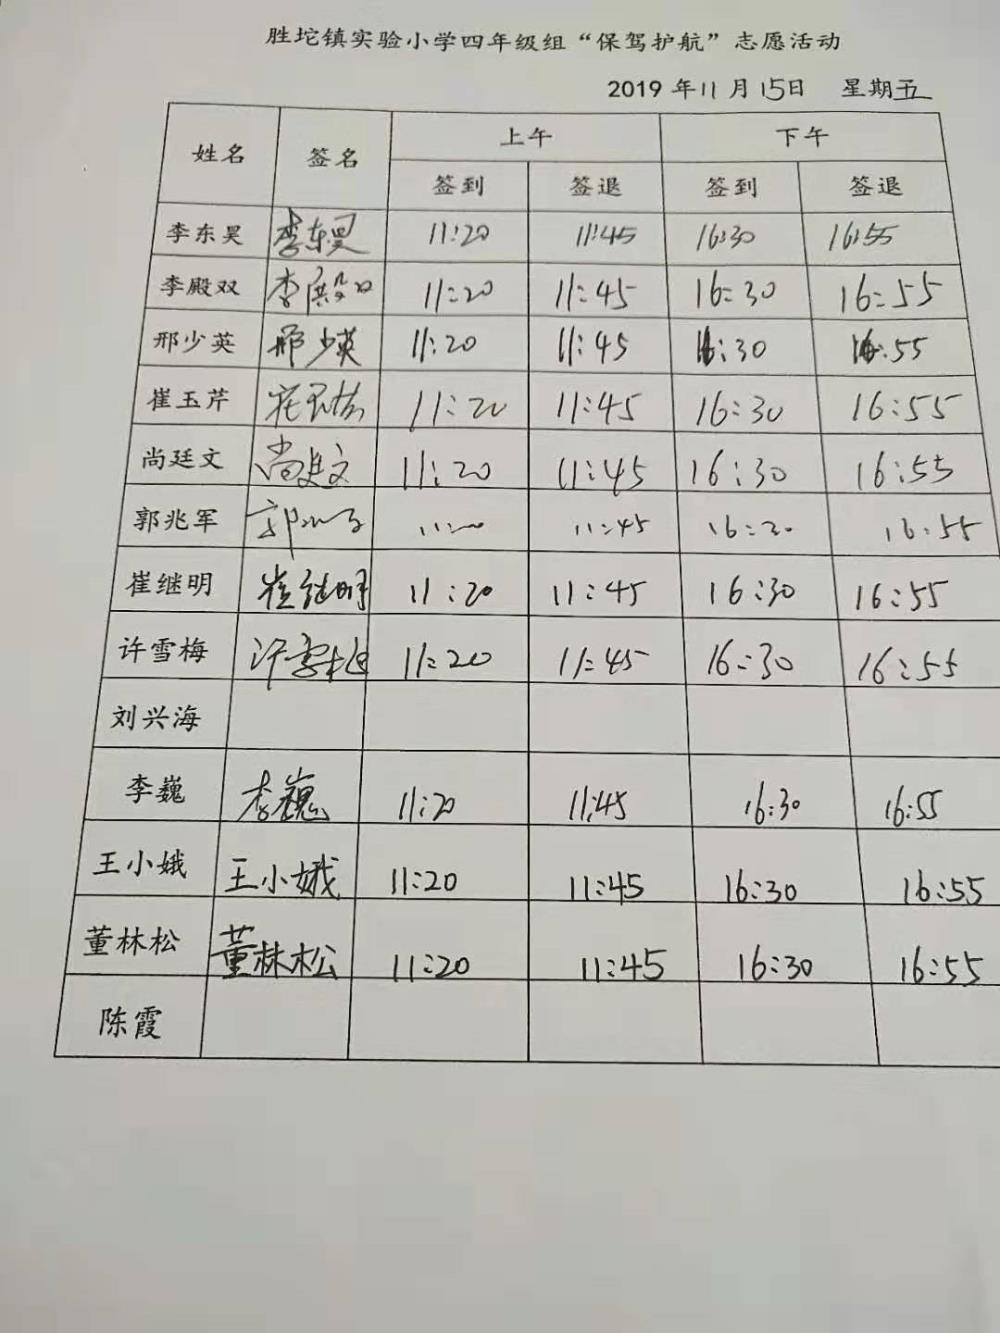 胜坨镇实验小学四年级组“保驾护航”志愿活动
2019年11月15日 星期五
姓名 签名 上午 下午
签到 签退 签到 签退
李东昊 李东昊 11:20 11:45 16:30 16:55
李殿双 李殿双 11:20 11:45 16:30 16:55
邢少英 邢少英 11:20 11:45 16:30 16:55
崔玉芹 11:20 11:45 16:30 16:55
尚廷文 尚廷文 11:20 11:45 16:30 16:55
郭兆军 11:45 16:55
崔继明 崔继明 11:20 11:45 16:30 16:55
许雪梅 许雪梅 11:20 11:45 16:30 16:55
刘兴海
李巍 李巍 11:20 11:45 16:30 16:55
王小娥 王小娥 11:20 11:45 16:30 16:55
董林松 董林松 11:20 11:45 16:30 16:55
陈霞